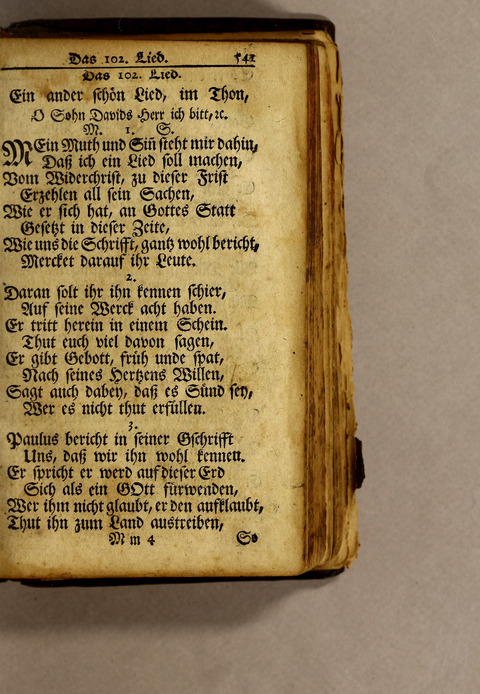 Das 102. Lied. 541
Das 102. Lied.
Ein ander schön Lied, im Thon,
O Sohn Davids Herr ich bitt, ꝛc.
M. 1. S.
MEin Muth und Siñ steht mir dahin,
Daß ich ein Lied soll machen,
Vom Widerchrist, zu dieser Frist
Erzehlen all sein Sachen,
Wie er sich hat, an Gottes Statt
Gesetzt in dieser Zeite,
Wie uns die Schrifft, gantz wohl bericht,
Mercket darauf ihr Leute.
2.
Daran solt ihr ihn kennen schier,
Auf seine Werck acht haben.
Er tritt herein in einem Schein.
Thut euch viel davon sagen,
Er gibt Gebott, früh unde spat,
Nach seines Hertzens Willen,
Sagt auch dabey, daß es Sünd sey,
Wer es nicht thut erfüllen.
3.
Paulus bericht in seiner Gschrifft
Uns, daß wir ihn wohl kennen.
Er spricht er werd auf dieser Erd
Sich als ein GOtt fürwenden,
Wer ihm nicht glaubt, er den aufklaubt,
Thut ihn zum Land austreiben,
M m 4 So